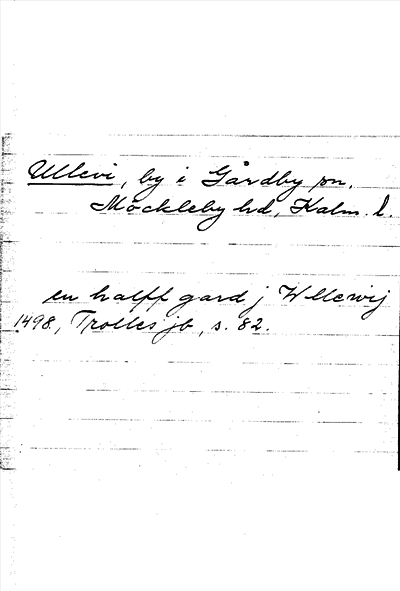 Ullevi, by i Gårdby sn,
Möckleby hd, Kalm. l.
en halff gard j Wllewij
1498, Trolles jb, s. 82.